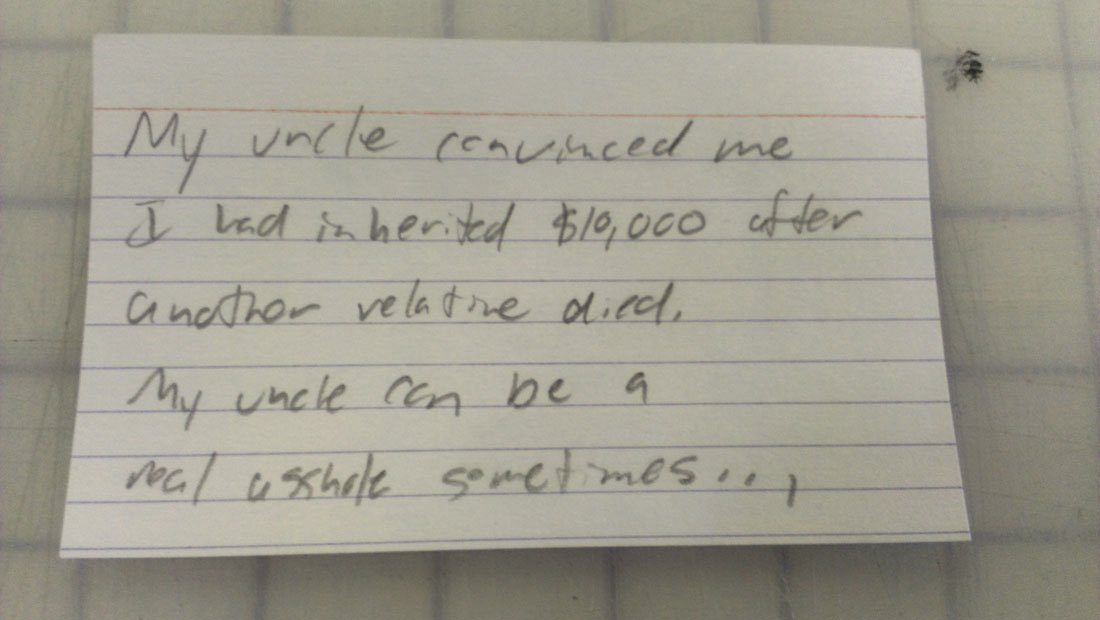 My uncle convinced me
I had inherited $10,000 after
another relative died.
My uncle can be a
real asshole sometimes...,